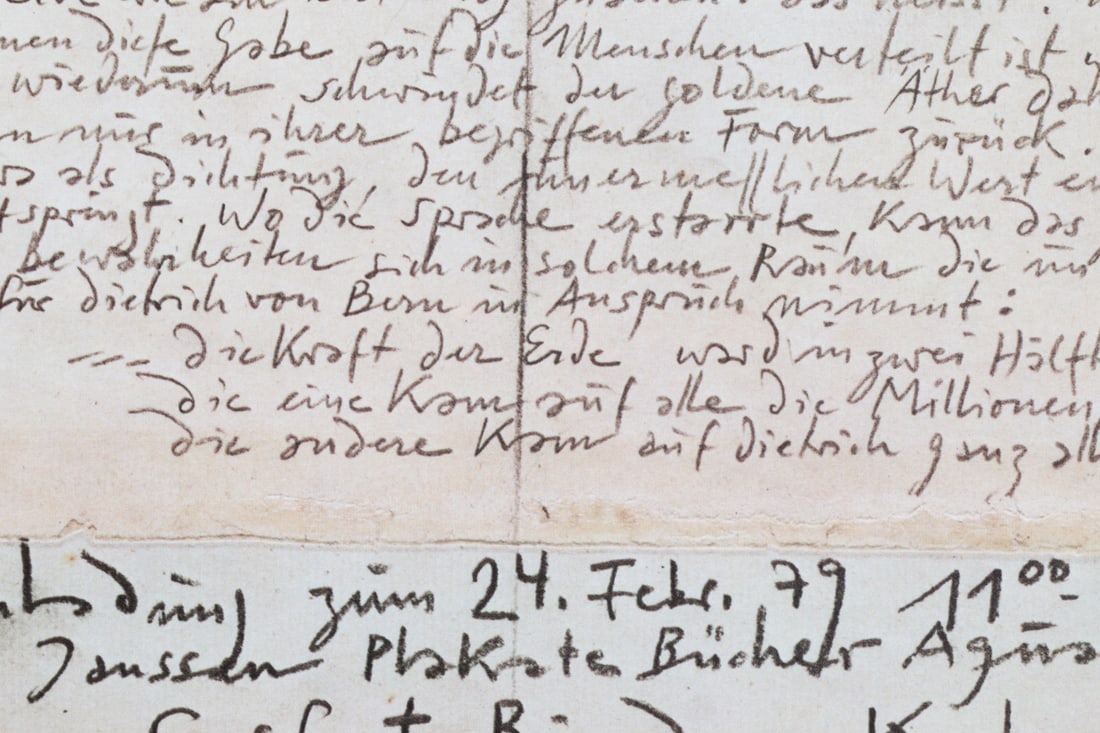 diese Gabe auf die Menschen verteilt ist
wiederum schwindet der goldene Äther
nur in ihrer begriffenen Form zurück.
als Dichtung, den unermeßlichen Wert
Wo die Sprache erstarrte, kann das
bewahrheiten sich in solchem Raum die
für dietrich von Bern in Anspruch nimmt:
die Kraft der Erde ward in zwei Hälft
die eine Kam auf alle die Millionen
die andere Kam auf dietrich ganz all
ladung zum 24. Febr. 79 11 00
Janssen Plakate Bücher Aqua